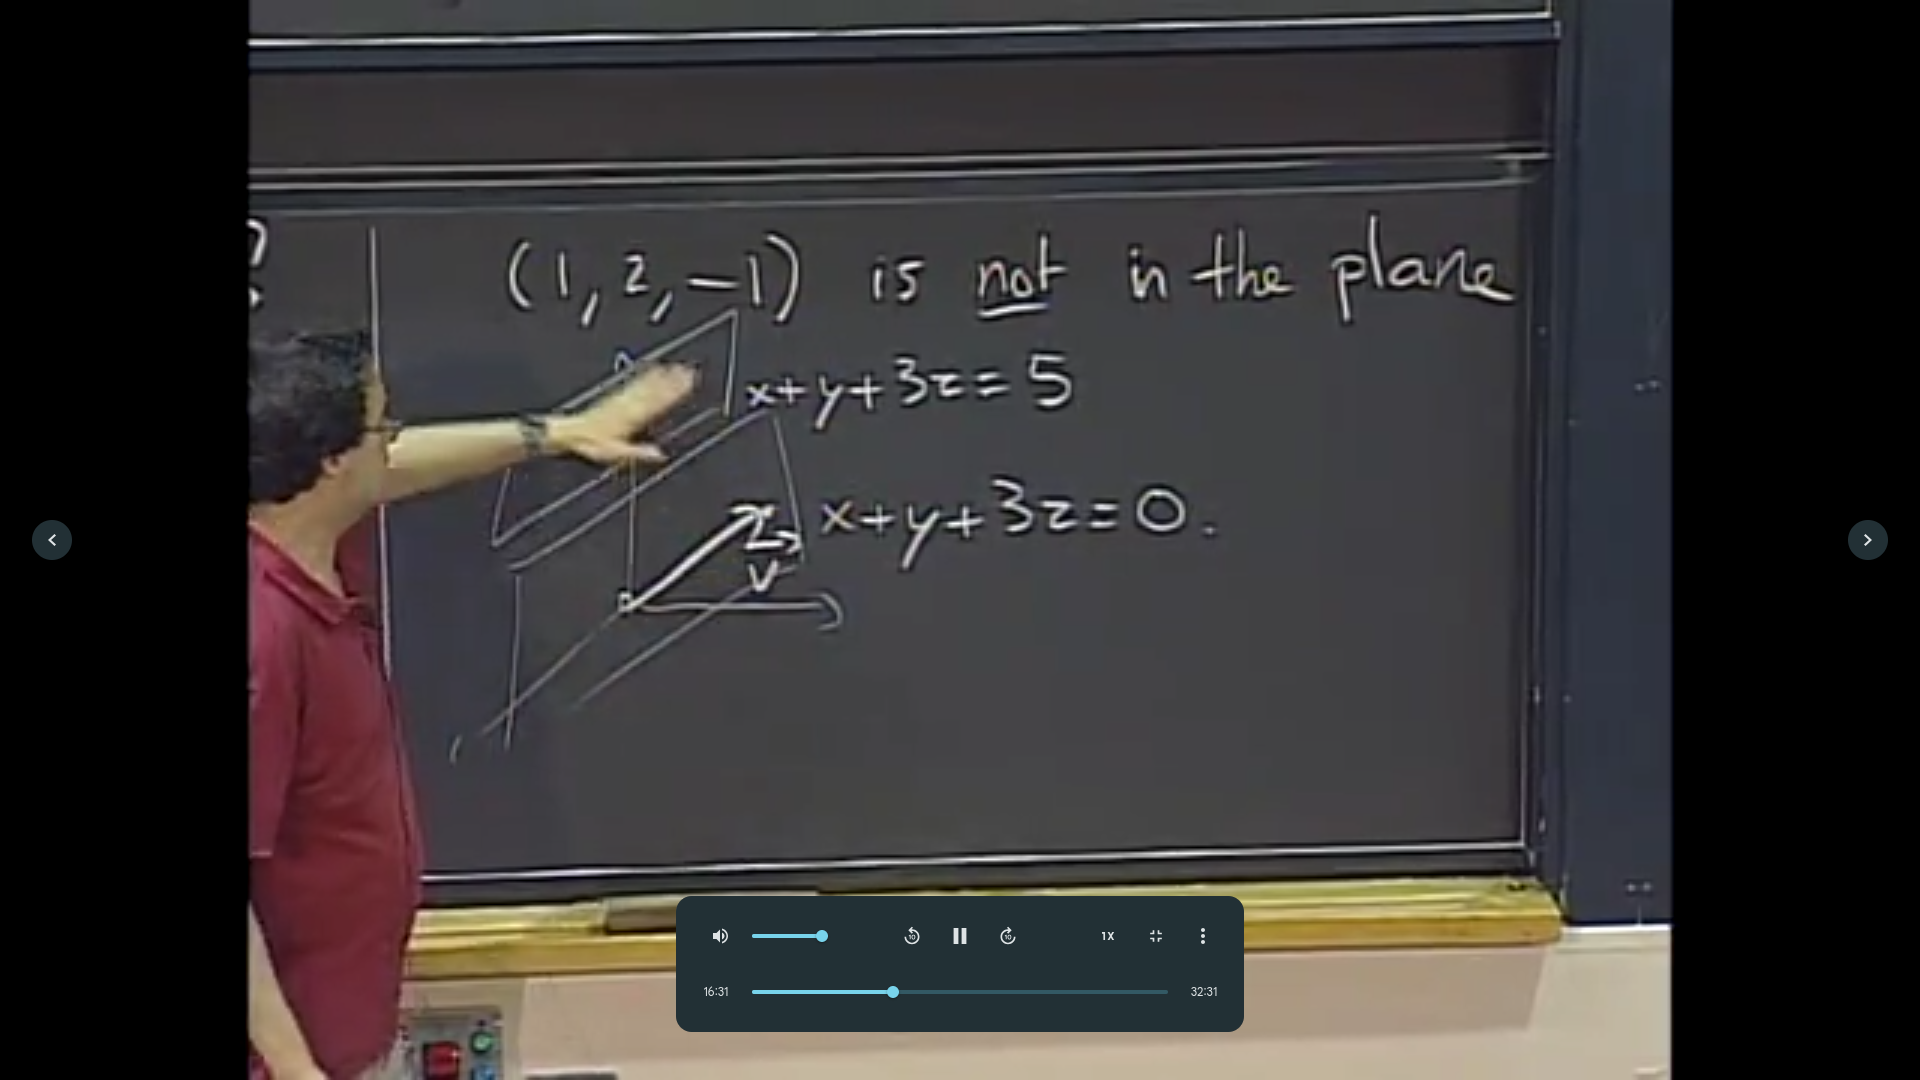 ?
(1, 2, -1) is not in the plane
x+y+3z=5
x+y+3z=0.
v
10
10
1X
16:31
32:31